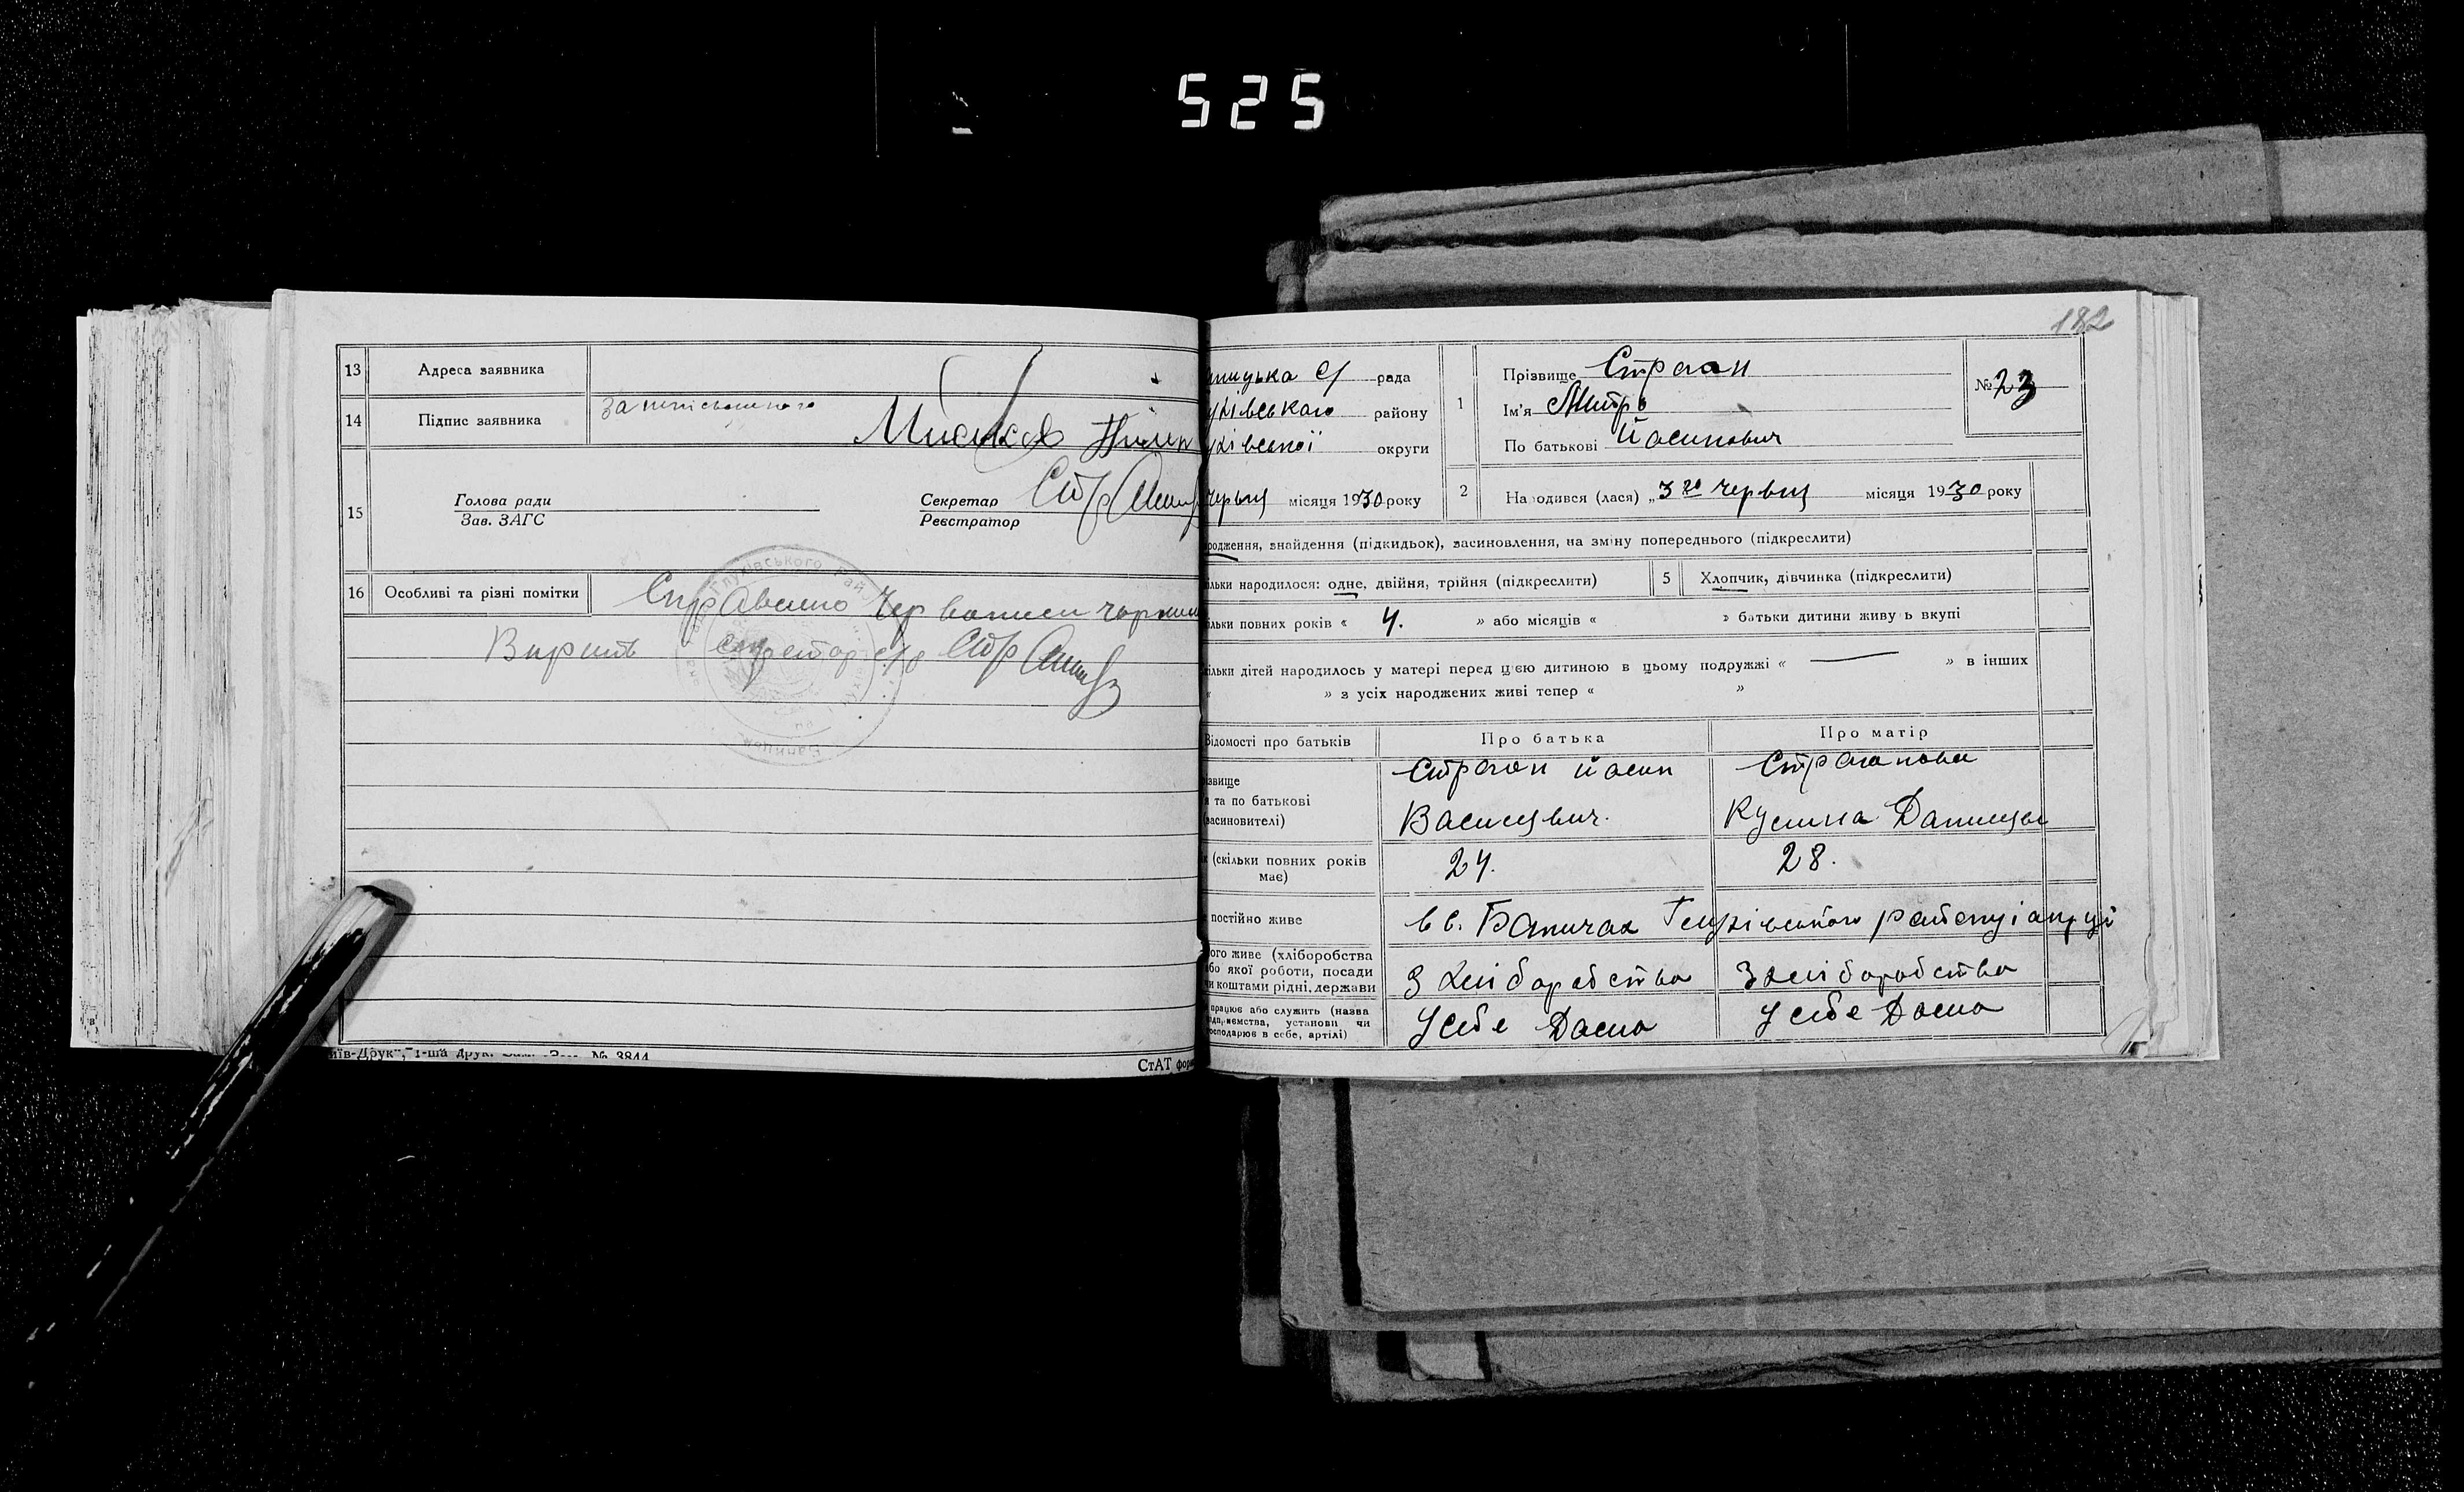 525
13 Адреса заявника
14 Підпис заявника
15 Голова ради
Зав. ЗАГС
Секретар
Реєстратор
16 Особливі та різні помітки
Справлено чорнили
Вирить секретар с/р
Глухівського Рай
№ 3844
СтАТ фор
182
ицька с/ рада
ухівського району
ухівської округи
червця місяця 1930 року
1 Прізвище Страон
Ім'я Митро
По батькові Йосипович
№ 23
2 Народився (лася) „3го червця місяця 1930 року
родження, знайдення (підкидьок), засиновлення, на зміну попереднього (підкреслити)
ільки народилося: одне, двійня, трійня (підкреслити) 5 Хлопчик, дівчинка (підкреслити)
ільки повних років « 4. » або місяців « » батьки дитини живуть вкупі
кільки дітей народилось у матері перед цією дитиною в цьому подружжі « — » в інших
« » з усіх народжених живі тепер « »
Відомості про батьків Про батька Про матір
ізвище
я та по батькові
(засиновителі)
Страон Йосип
Васильвич.
Страонова
(скільки повних років
має) 24. 28.
постійно живе в с. Баничах Глухівського району і округи
ого живе (хліборобства
або якої роботи, посади
чи коштами рідні, держави
З хліборобства З хліборобства
працює або служить (назва
підприємства, установи чи
господарює в себе, артілі)
У себе Дома У себе Дома